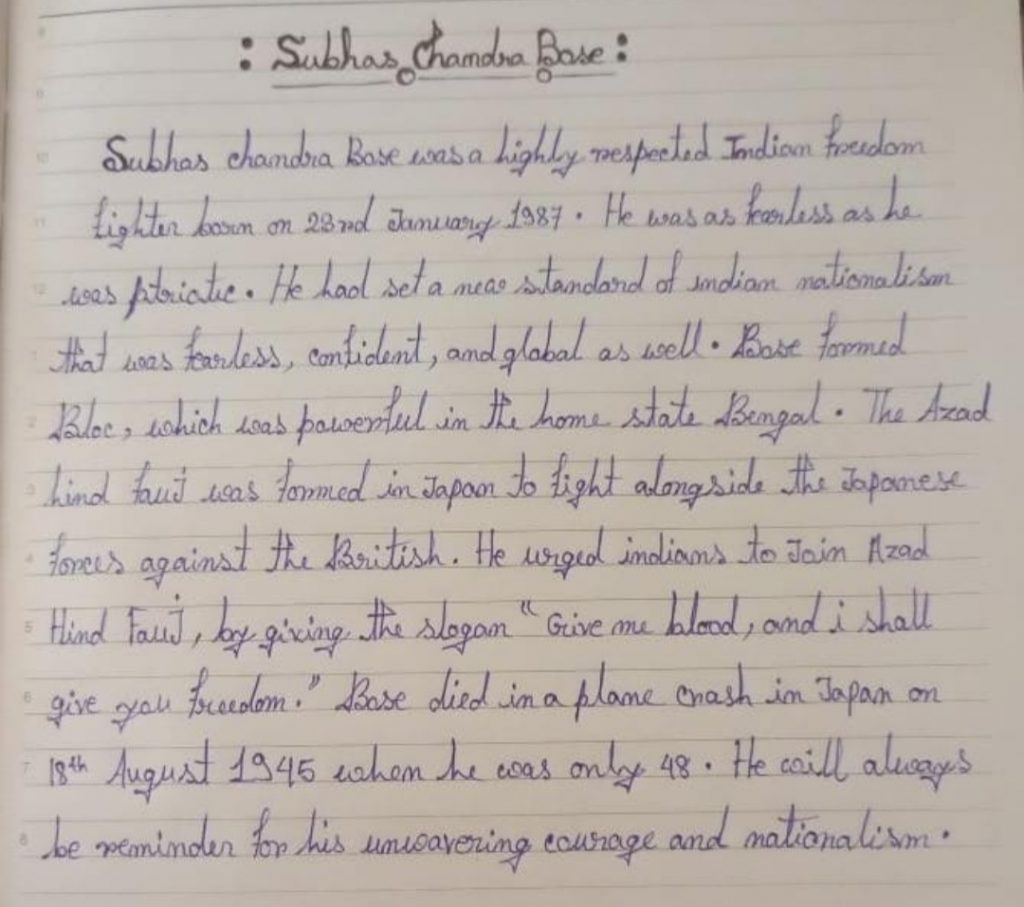 : Subhas Chandra Base :
Subhas chandra Base was a highly respected Indian freedom
fighter born on 23rd January 1987. He was as fearless as he
was ptriatic. He had set a new standard of indian nationalism
that was fearless, confident, and global as well. Base formed
Bloc, which was powerful in the home state Bengal. The Azad
hind fauj was formed in Japan to fight alongside the Japanese
forces against the British. He urged indians to Join Azad
Hind Fauj, by giving the slogan "Give me blood, and i shall
give you freedom." Base died in a plane crash in Japan on
18th August 1945 when he was only 48. He will always
be reminder for his unwavering courage and nationalism.